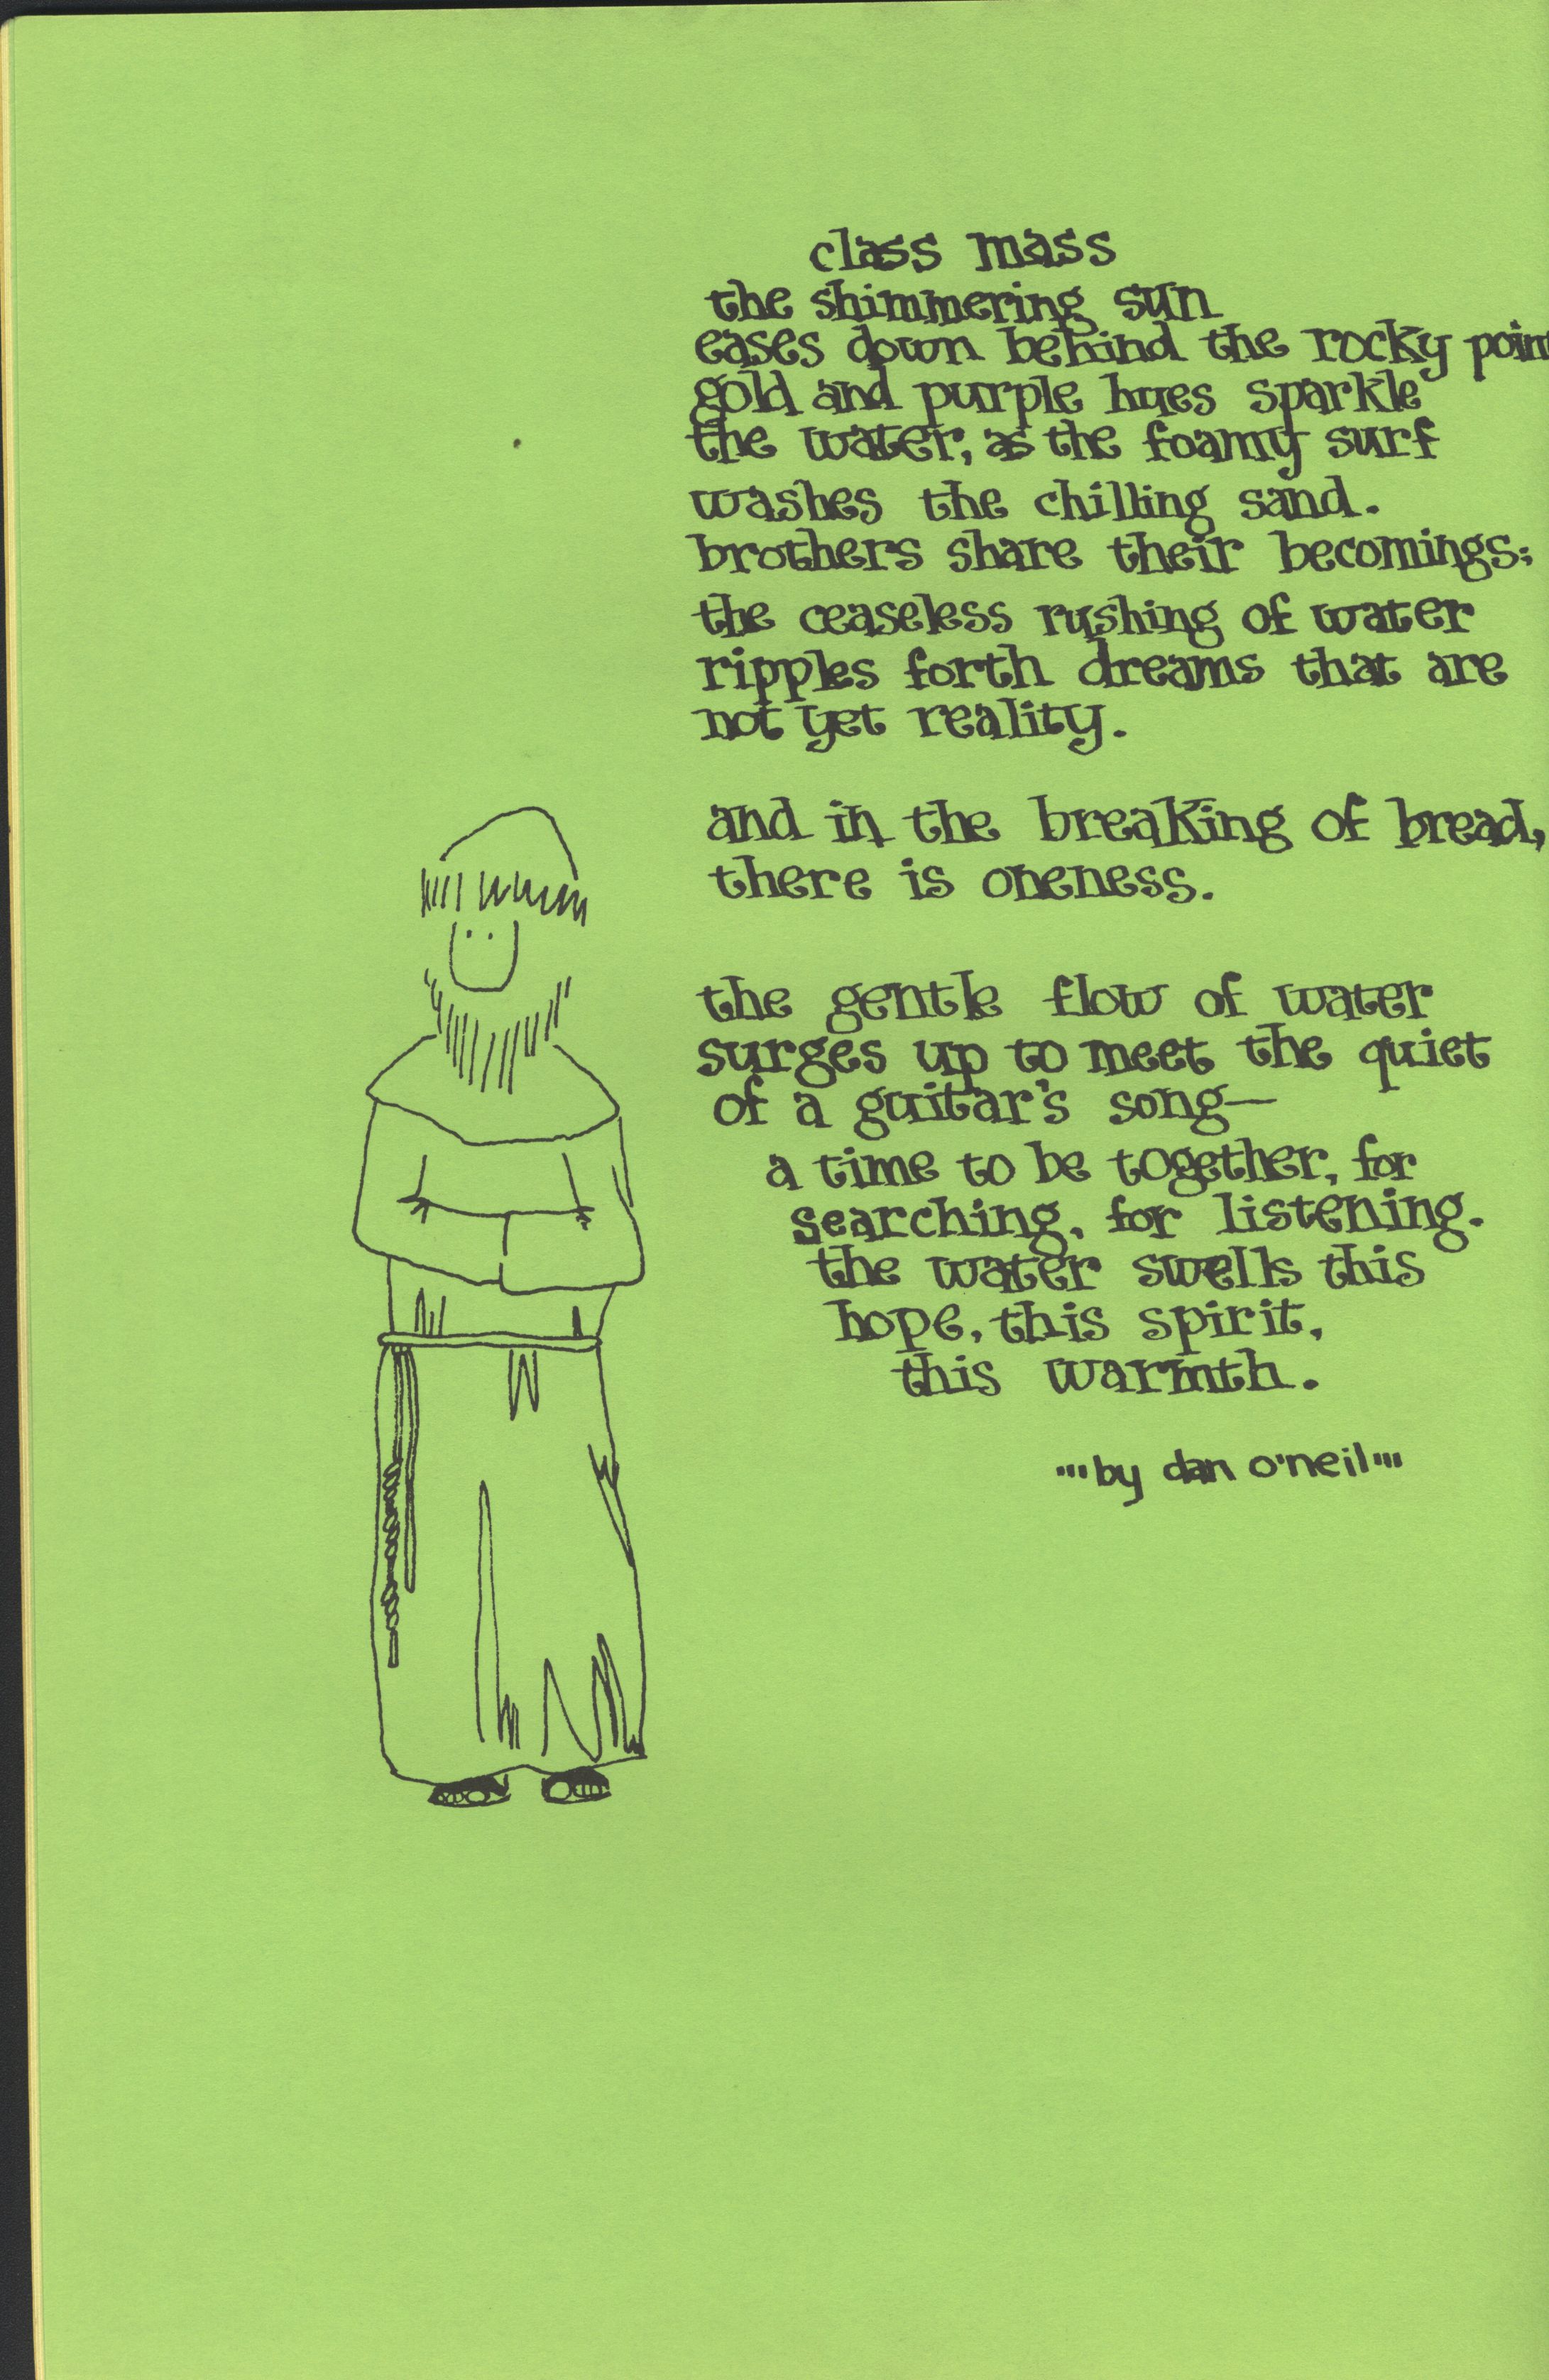 class mass
the shimmering sun
eases down behind the rocky point
gold and purple hues sparkle
the water, as the foamy surf
washes the chilling sand.
brothers share their becomings;
the ceaseless rushing of water
ripples forth dreams that are
not yet reality.
and in the breaking of bread,
there is oneness.
the gentle flow of water
surges up to meet the quiet
of a guitar's song—
a time to be together, for
searching, for listening.
the water swells this
hope, this spirit,
this warmth.
"'by dan o'neil"'